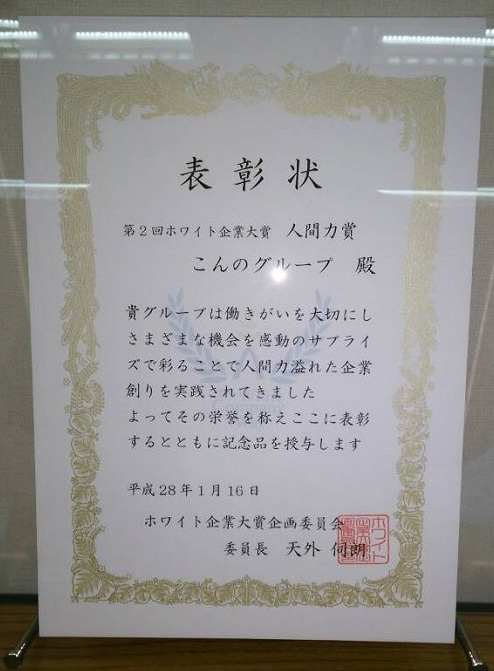 表彰状
第2回ホワイト企業大賞 人間力賞
こんのグループ 殿
貴グループは働きがいを大切にし
さまざまな機会を感動のサプライ
ズで彩ることで人間力溢れた企業
創りを実践されてきました
よってその栄誉を称えここに表彰
するとともに記念品を授与します
平成28年1月16日
ホワイト企業大賞企画委員会
委員長 天外 伺朗